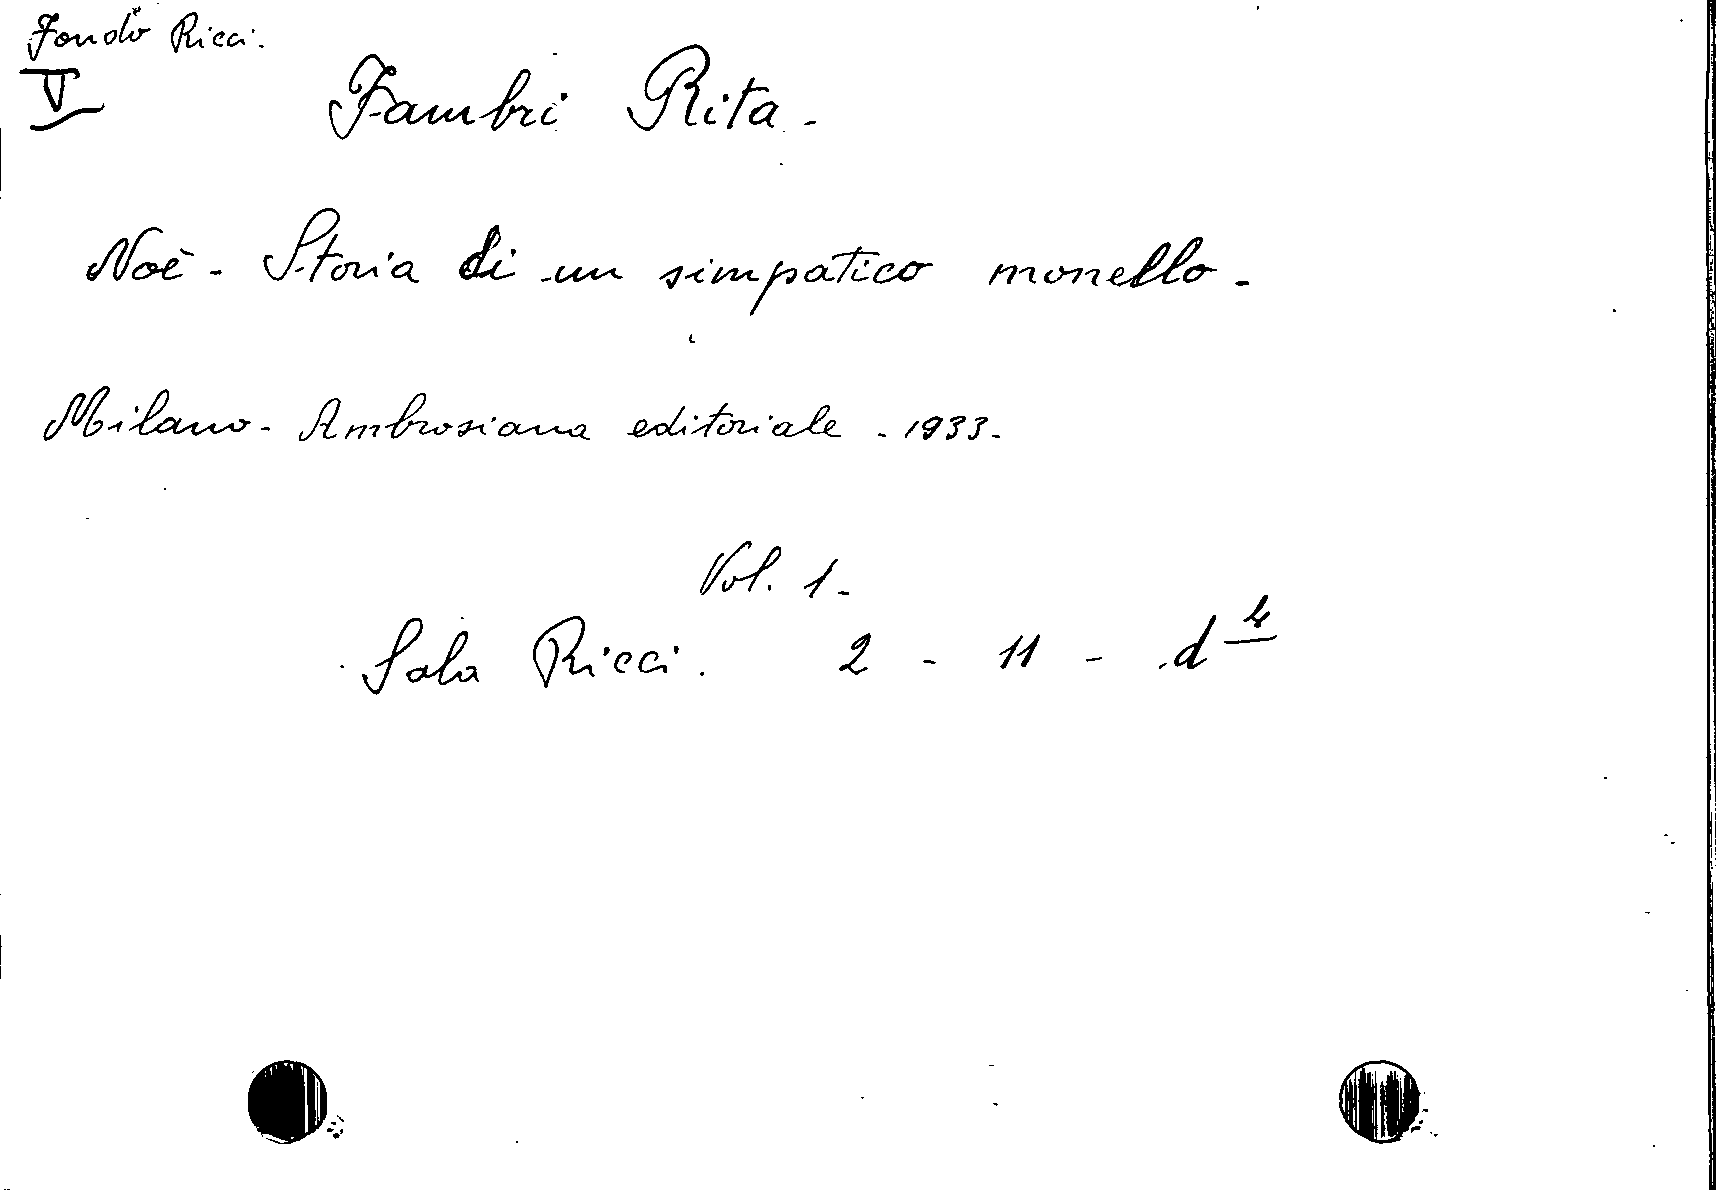 Fondo Ricci.
V
Fambri Rita -
Noè - Storia di un simpatico monello -
Milano - Ambrosiana editoriale - 1933 -
Vol. 1 -
Sala Ricci. 2 - 11 - d 4